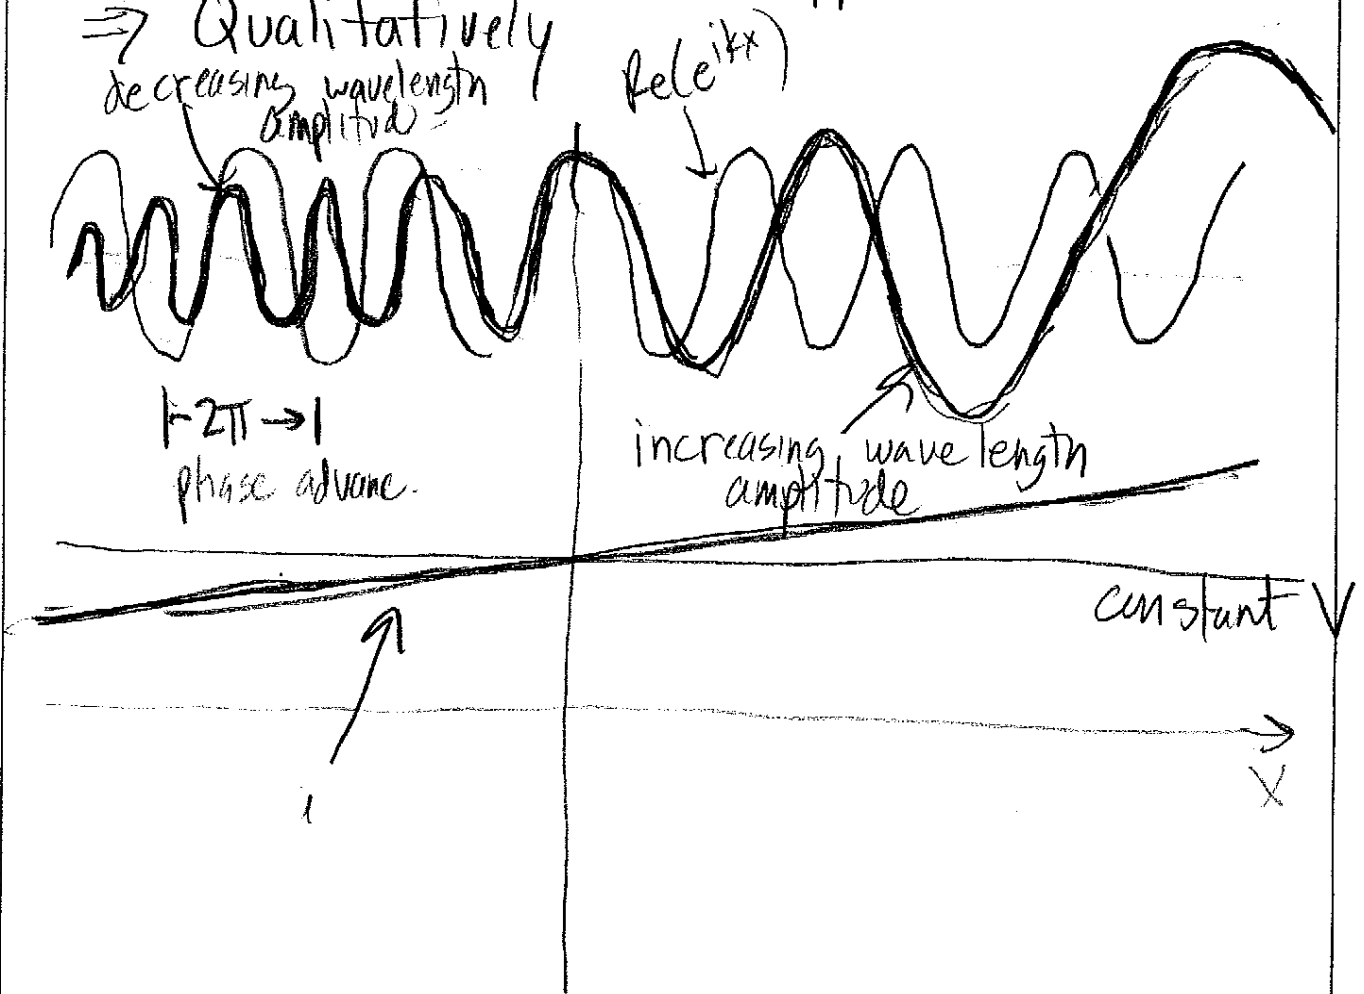 ⇒ Qualitatively
decreasing wavelength
amplitud
Re(e^{ikx})
|-2π→|
phase advanc.
increasing wavelength
amplitude
constant
x